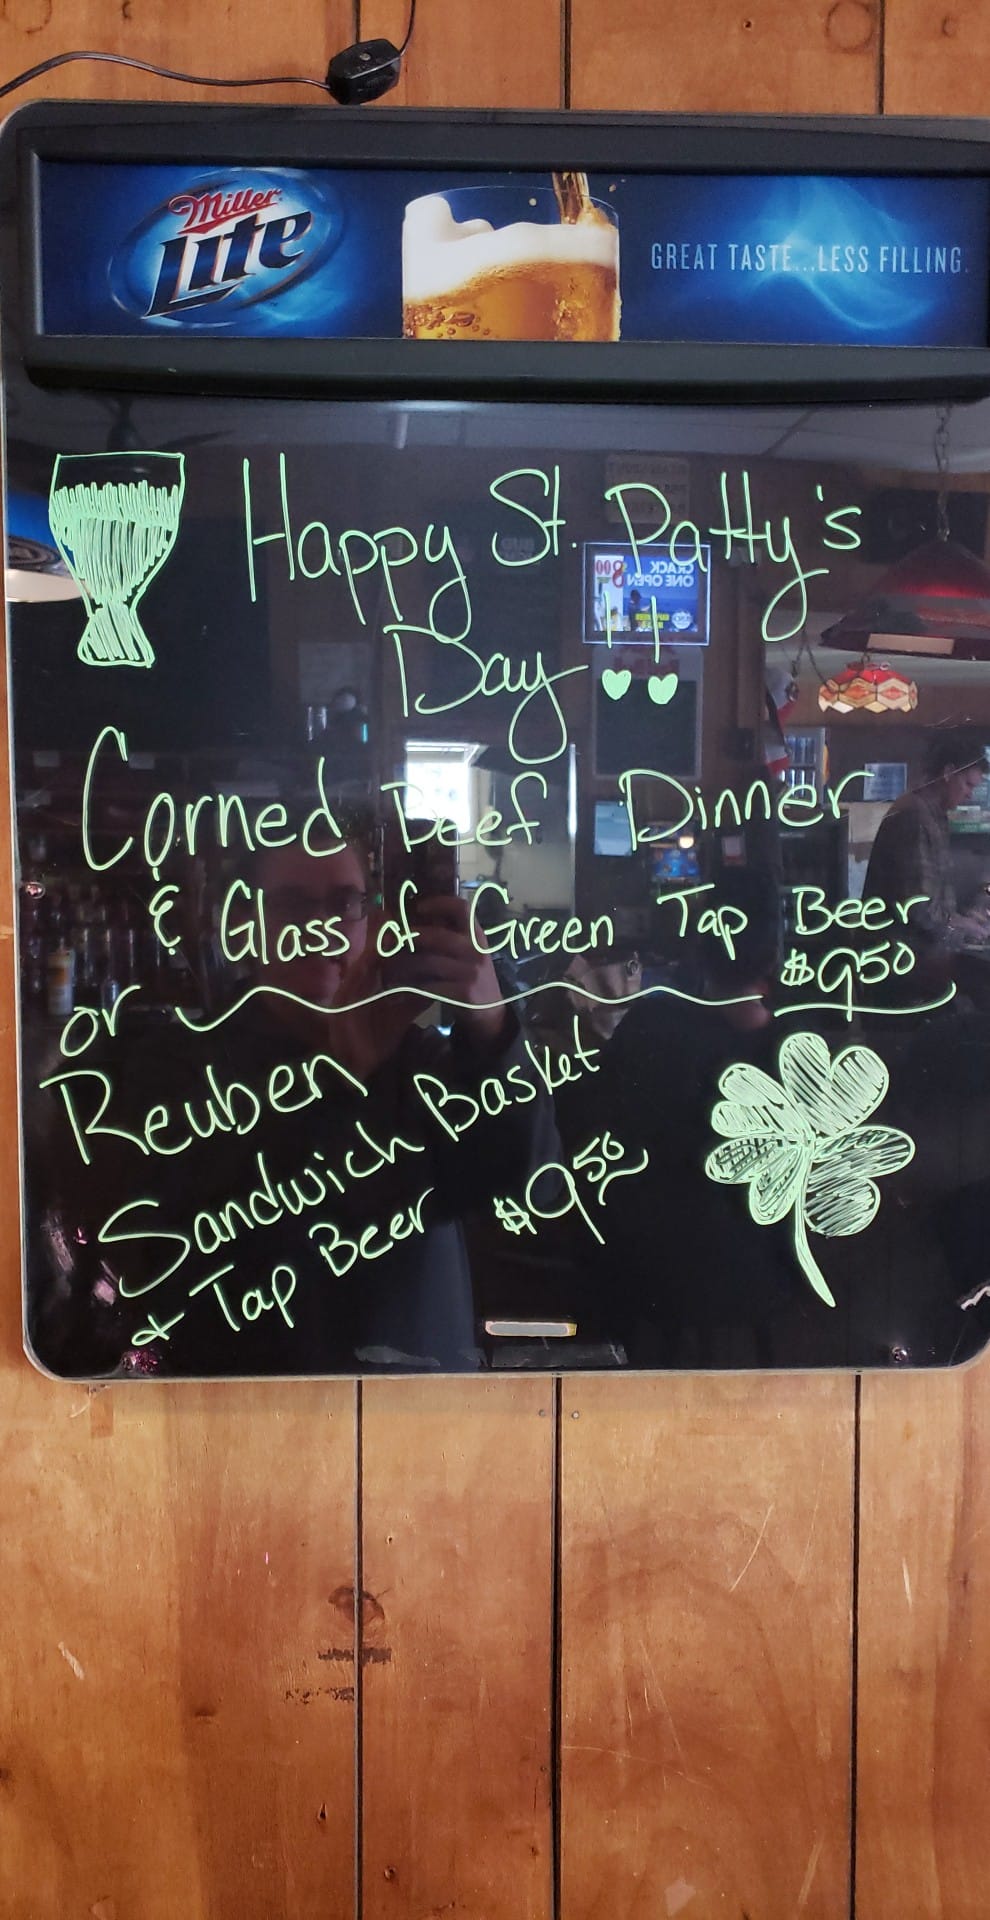 Miller
Lite
GREAT TASTE...LESS FILLING.
Happy St. Patty's
Day !!
Corned Beef Dinner
& Glass of Green Tap Beer
$9.50
or
Reuben
Sandwich Basket
& Tap Beer $9.50
CRACK
ONE OPEN